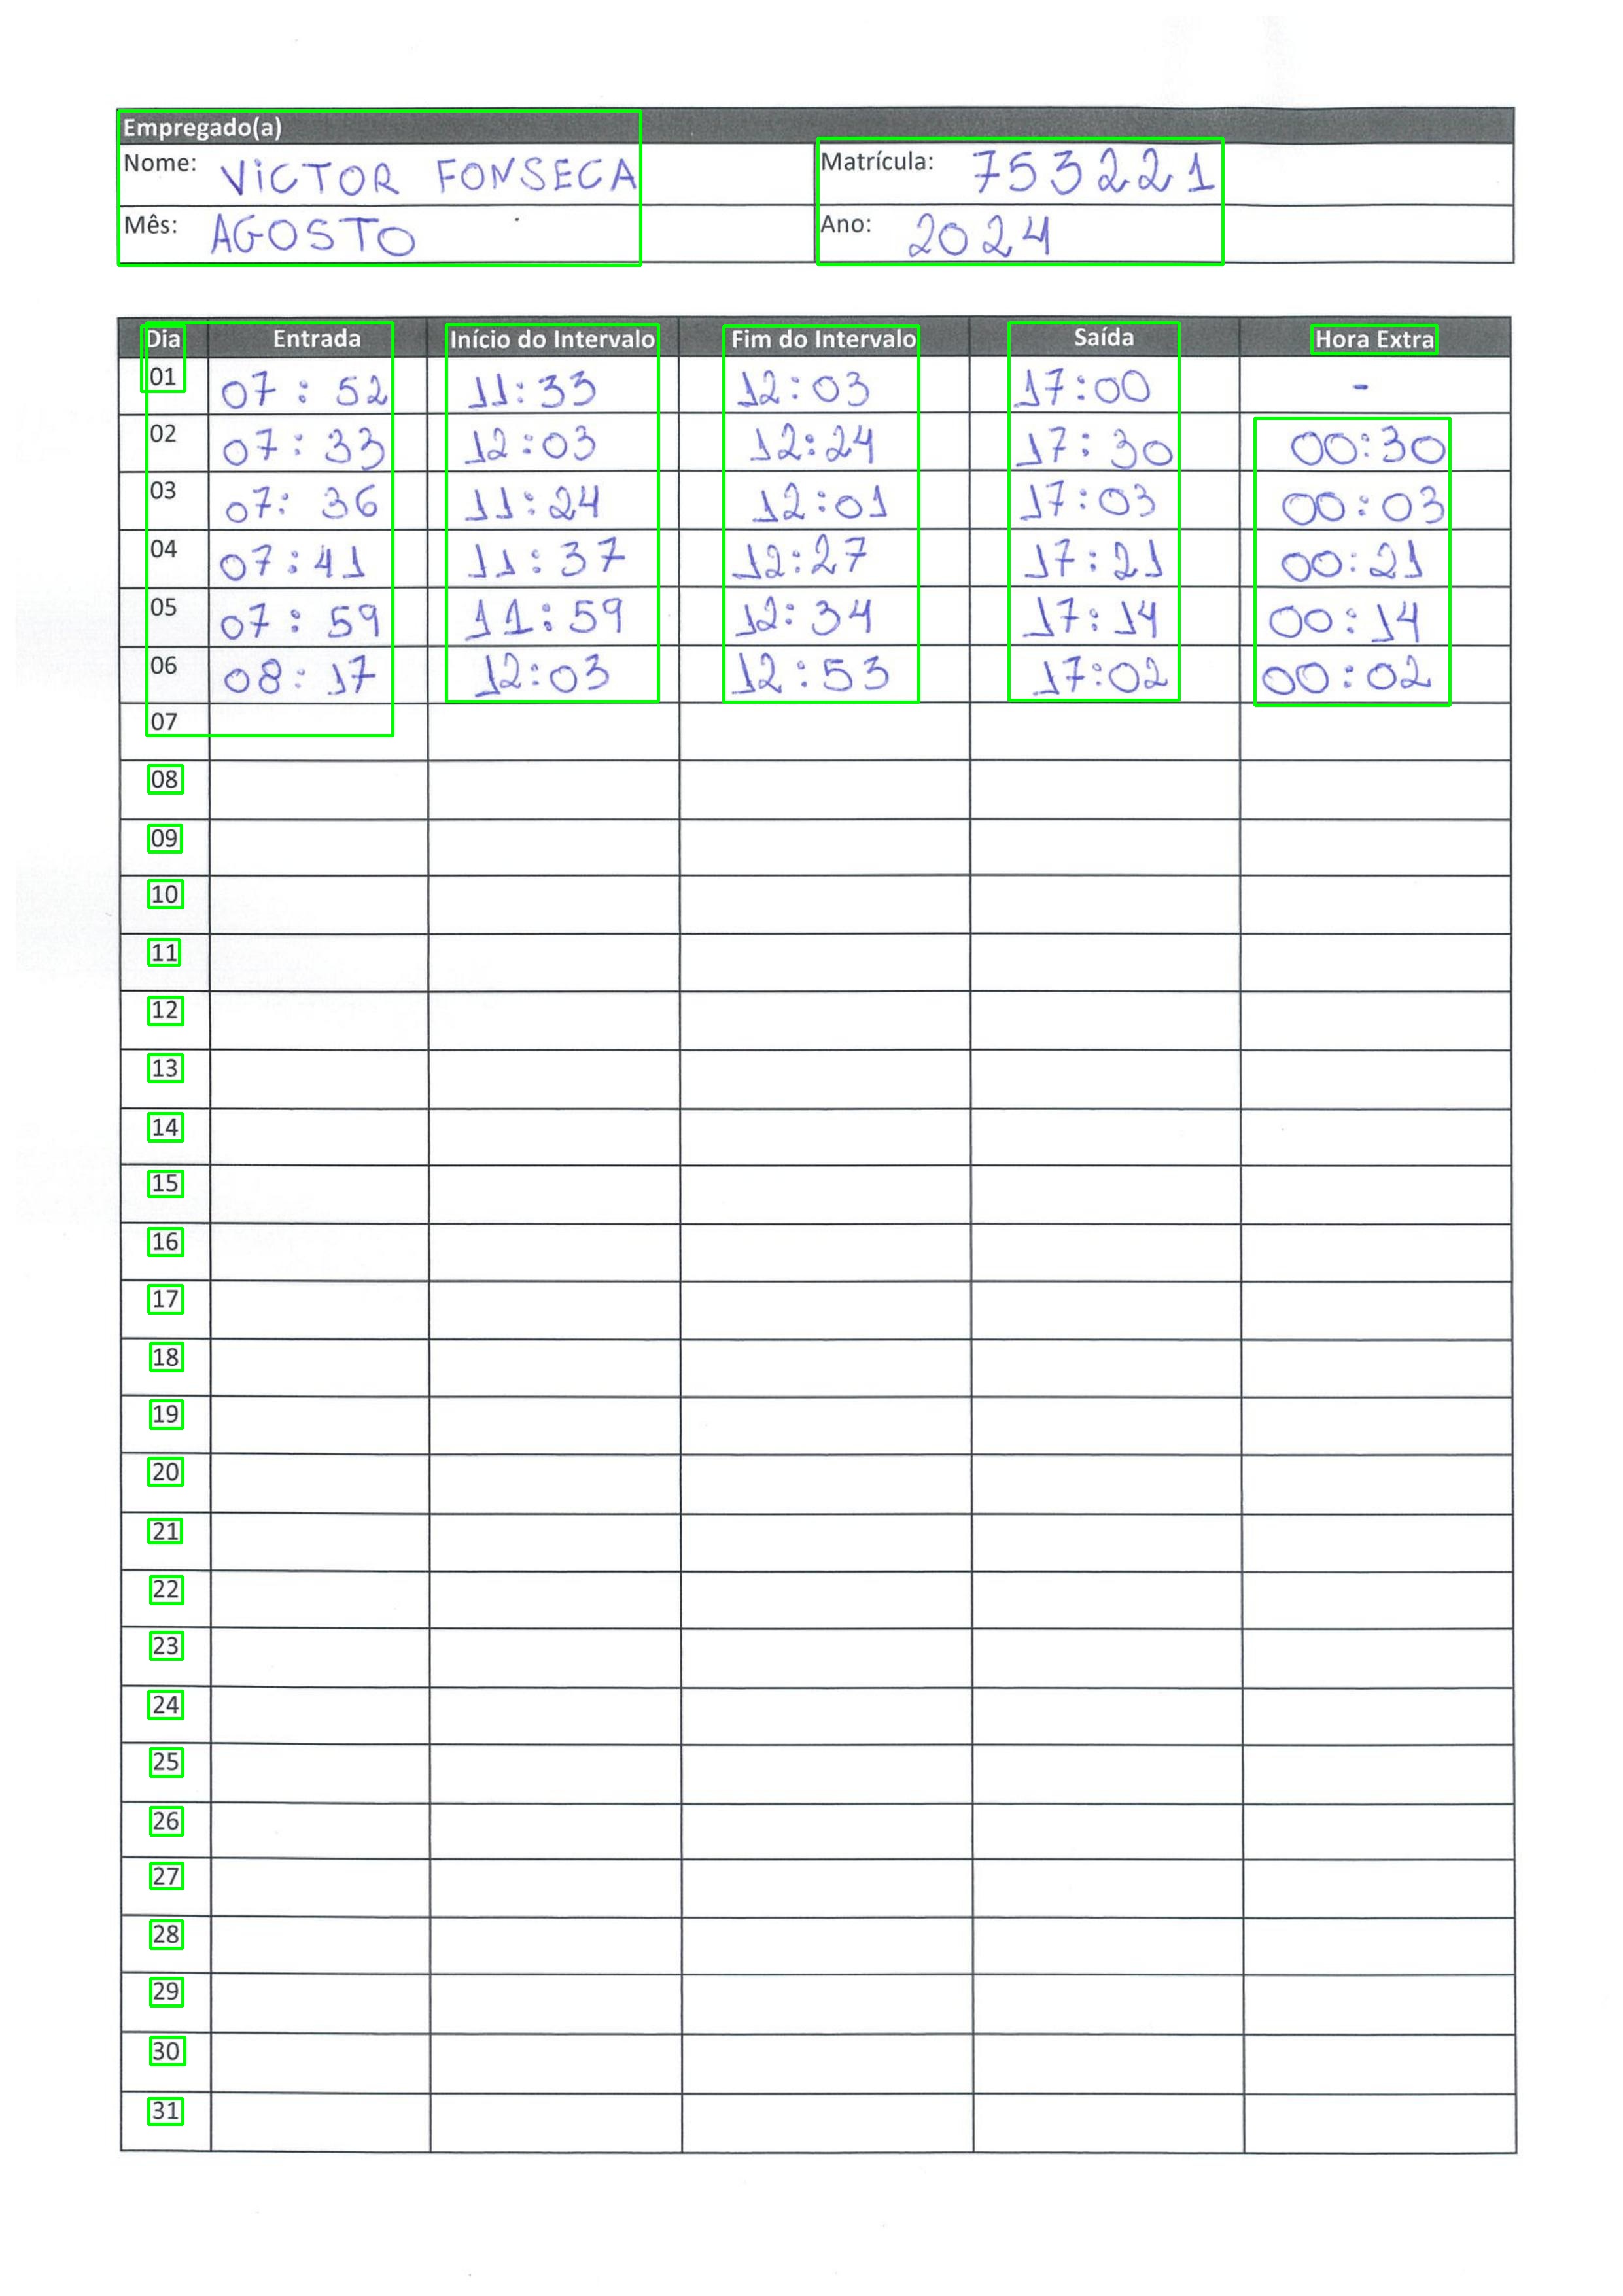 Empregado(a)
Nome: ViCTOR FONSECA Matrícula: 753221
Mês: AGOSTO Ano: 2024
Dia Entrada Início do Intervalo Fim do Intervalo Saída Hora Extra
01 07:52 11:33 12:03 17:00 -
02 07:33 12:03 12:24 17:30 00:30
03 07:36 11:24 12:01 17:03 00:03
04 07:41 11:37 12:27 17:21 00:21
05 07:59 11:59 12:34 17:14 00:14
06 08:17 12:03 12:53 17:02 00:02
07
08
09
10
11
12
13
14
15
16
17
18
19
20
21
22
23
24
25
26
27
28
29
30
31